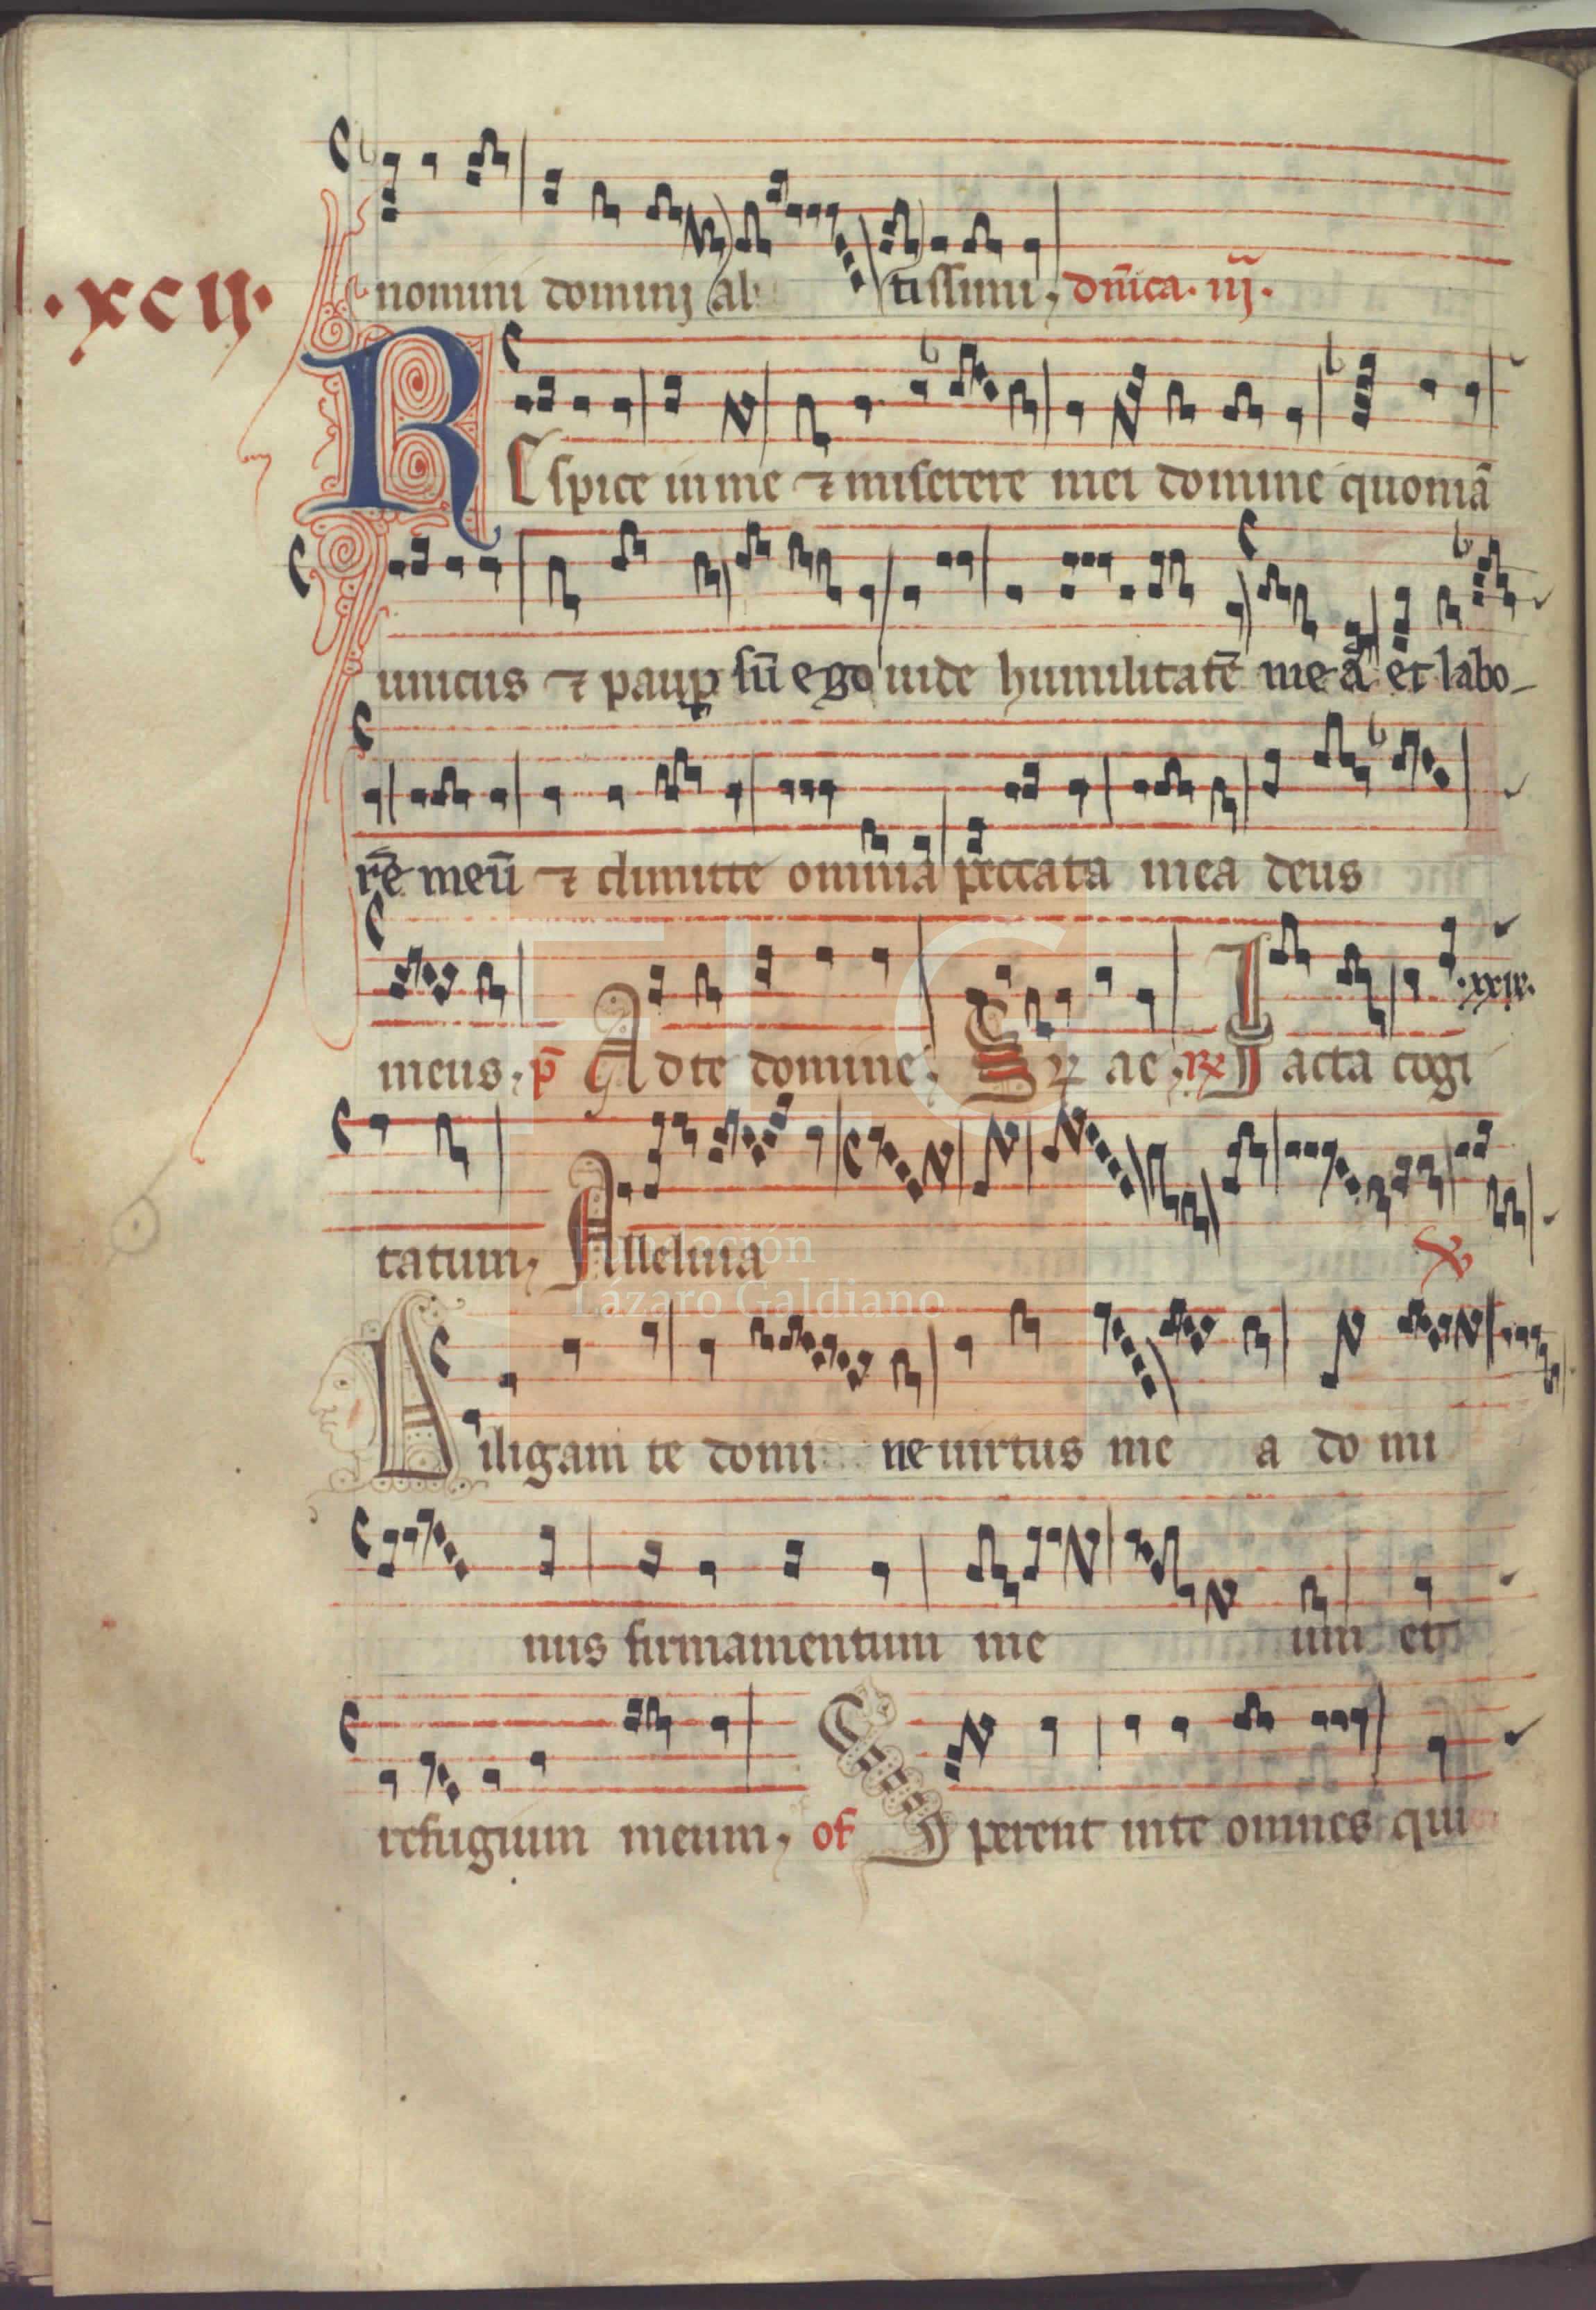 nomini domini al tissimi, dñica. iij.
.xcij.
REspice in me ⁊ miserere mei domine quoniã
unicus ⁊ paup sũ ego uide humilitatẽ meã et labo-
rẽ meũ ⁊ dimitte omnia peccata mea deus
meus, p̃ Ad te domine, ae, R Iacta cogi
.xxix.
tatum, Alleluia
Fundación
Lázaro Galdiano
FLG
Diligam te domi ne uirtus me a do mi
nus firmamentum me um et
refugium meum, of Sperent in te omnes qui